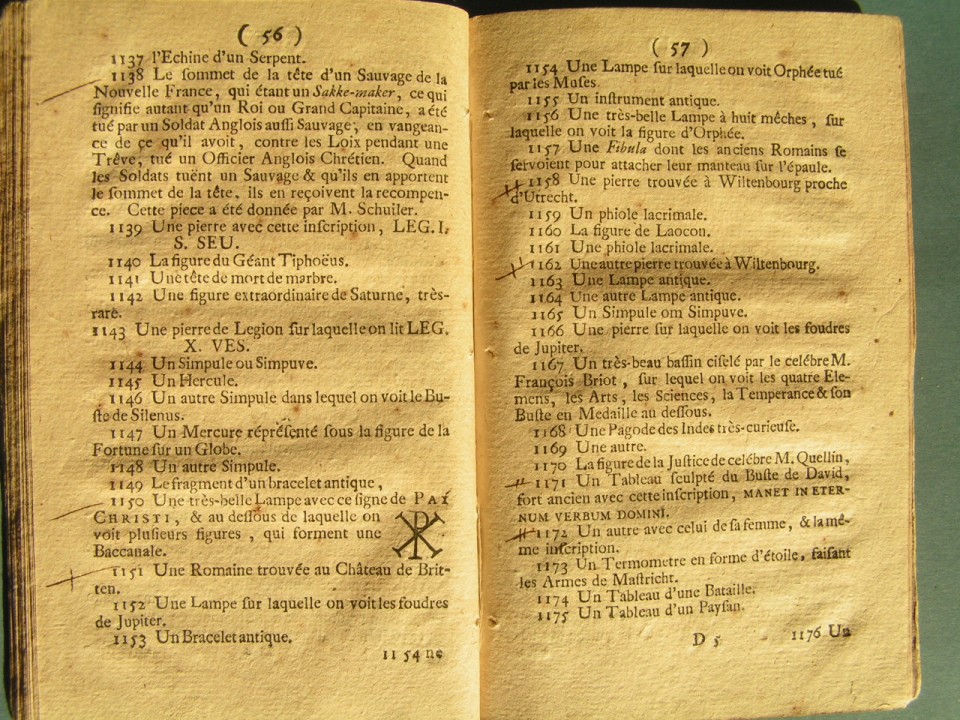 ( 56 )
1137 l'Echine d'un Serpent.
1138 Le ſommet de la tête d'un Sauvage de la
Nouvelle France, qui étant un Sakke-maker, ce qui
ſignifie autant qu'un Roi ou Grand Capitaine, a été
tué par un Soldat Anglois auſſi Sauvage, en vangean-
ce de ce qu'il avoit, contre les Loix pendant une
Trêve, tué un Officier Anglois Chrétien. Quand
les Soldats tuënt un Sauvage & qu'ils en apportent
le ſommet de la tête, ils en reçoivent la recompen-
ce. Cette piece a été donnée par M. Schuiler.
1139 Une pierre avec cette inſcription, LEG. I.
S. SEU.
1140 La figure du Géant Tiphoëus.
1141 Une tête de mort de marbre.
1142 Une figure extraordinaire de Saturne, très-
rare.
1143 Une pierre de Legion ſur laquelle on lit LEG.
X. VES.
1144 Un Simpule ou Simpuve.
1145 Un Hercule.
1146 Un autre Simpule dans lequel on voit le Bu-
ſte de Silenus.
1147 Un Mercure répréſenté ſous la figure de la
Fortune ſur un Globe.
1148 Un autre Simpule.
1149 Le fragment d'un bracelet antique,
1150 Une très-belle Lampe avec ce ſigne de PAX
CHRISTI, & au deſſous de laquelle on
voit pluſieurs figures, qui forment une
Baccanale.
1151 Une Romaine trouvée au Château de Brit-
ten.
1152 Une Lampe ſur laquelle on voit les foudres
de Jupiter.
1153 Un Bracelet antique.
1154 ne
( 57 )
1154 Une Lampe ſur laquelle on voit Orphée tué
par les Muſes.
1155 Un inſtrument antique.
1156 Une très-belle Lampe à huit mêches, ſur
laquelle on voit la figure d'Orphée.
1157 Une Fibula dont les anciens Romains ſe
ſervoient pour attacher leur manteau ſur l'épaule.
1158 Une pierre trouvée à Wiltenbourg proche
d'Utrecht.
1159 Un phiole lacrimale.
1160 La figure de Laocon.
1161 Une phiole lacrimale.
1162 Une autre pierre trouvée à Wiltenbourg.
1163 Une Lampe antique.
1164 Une autre Lampe antique.
1165 Un Simpule om Simpuve.
1166 Une pierre ſur laquelle on voit les foudres
de Jupiter.
1167 Un très-beau baſſin ciſelé par le celébre M.
François Briot, ſur lequel on voit les quatre Ele-
mens, les Arts, les Sciences, la Temperance & ſon
Buſte en Medaille au deſſous.
1168 Une Pagode des Indes très-curieuſe.
1169 Une autre.
1170 La figure de la Juſtice de celébre M. Quellin,
1171 Un Tableau ſculpté du Buſte de David,
fort ancien avec cette inſcription, MANET IN ETER-
NUM VERBUM DOMINI.
1172 Un autre avec celui de ſa femme, & la mê-
me inſcription.
1173 Un Termometre en forme d'étoile, faiſant
les Armes de Maſtricht.
1174 Un Tableau d'une Bataille.
1175 Un Tableau d'un Payſan.
D 5
1176 Un